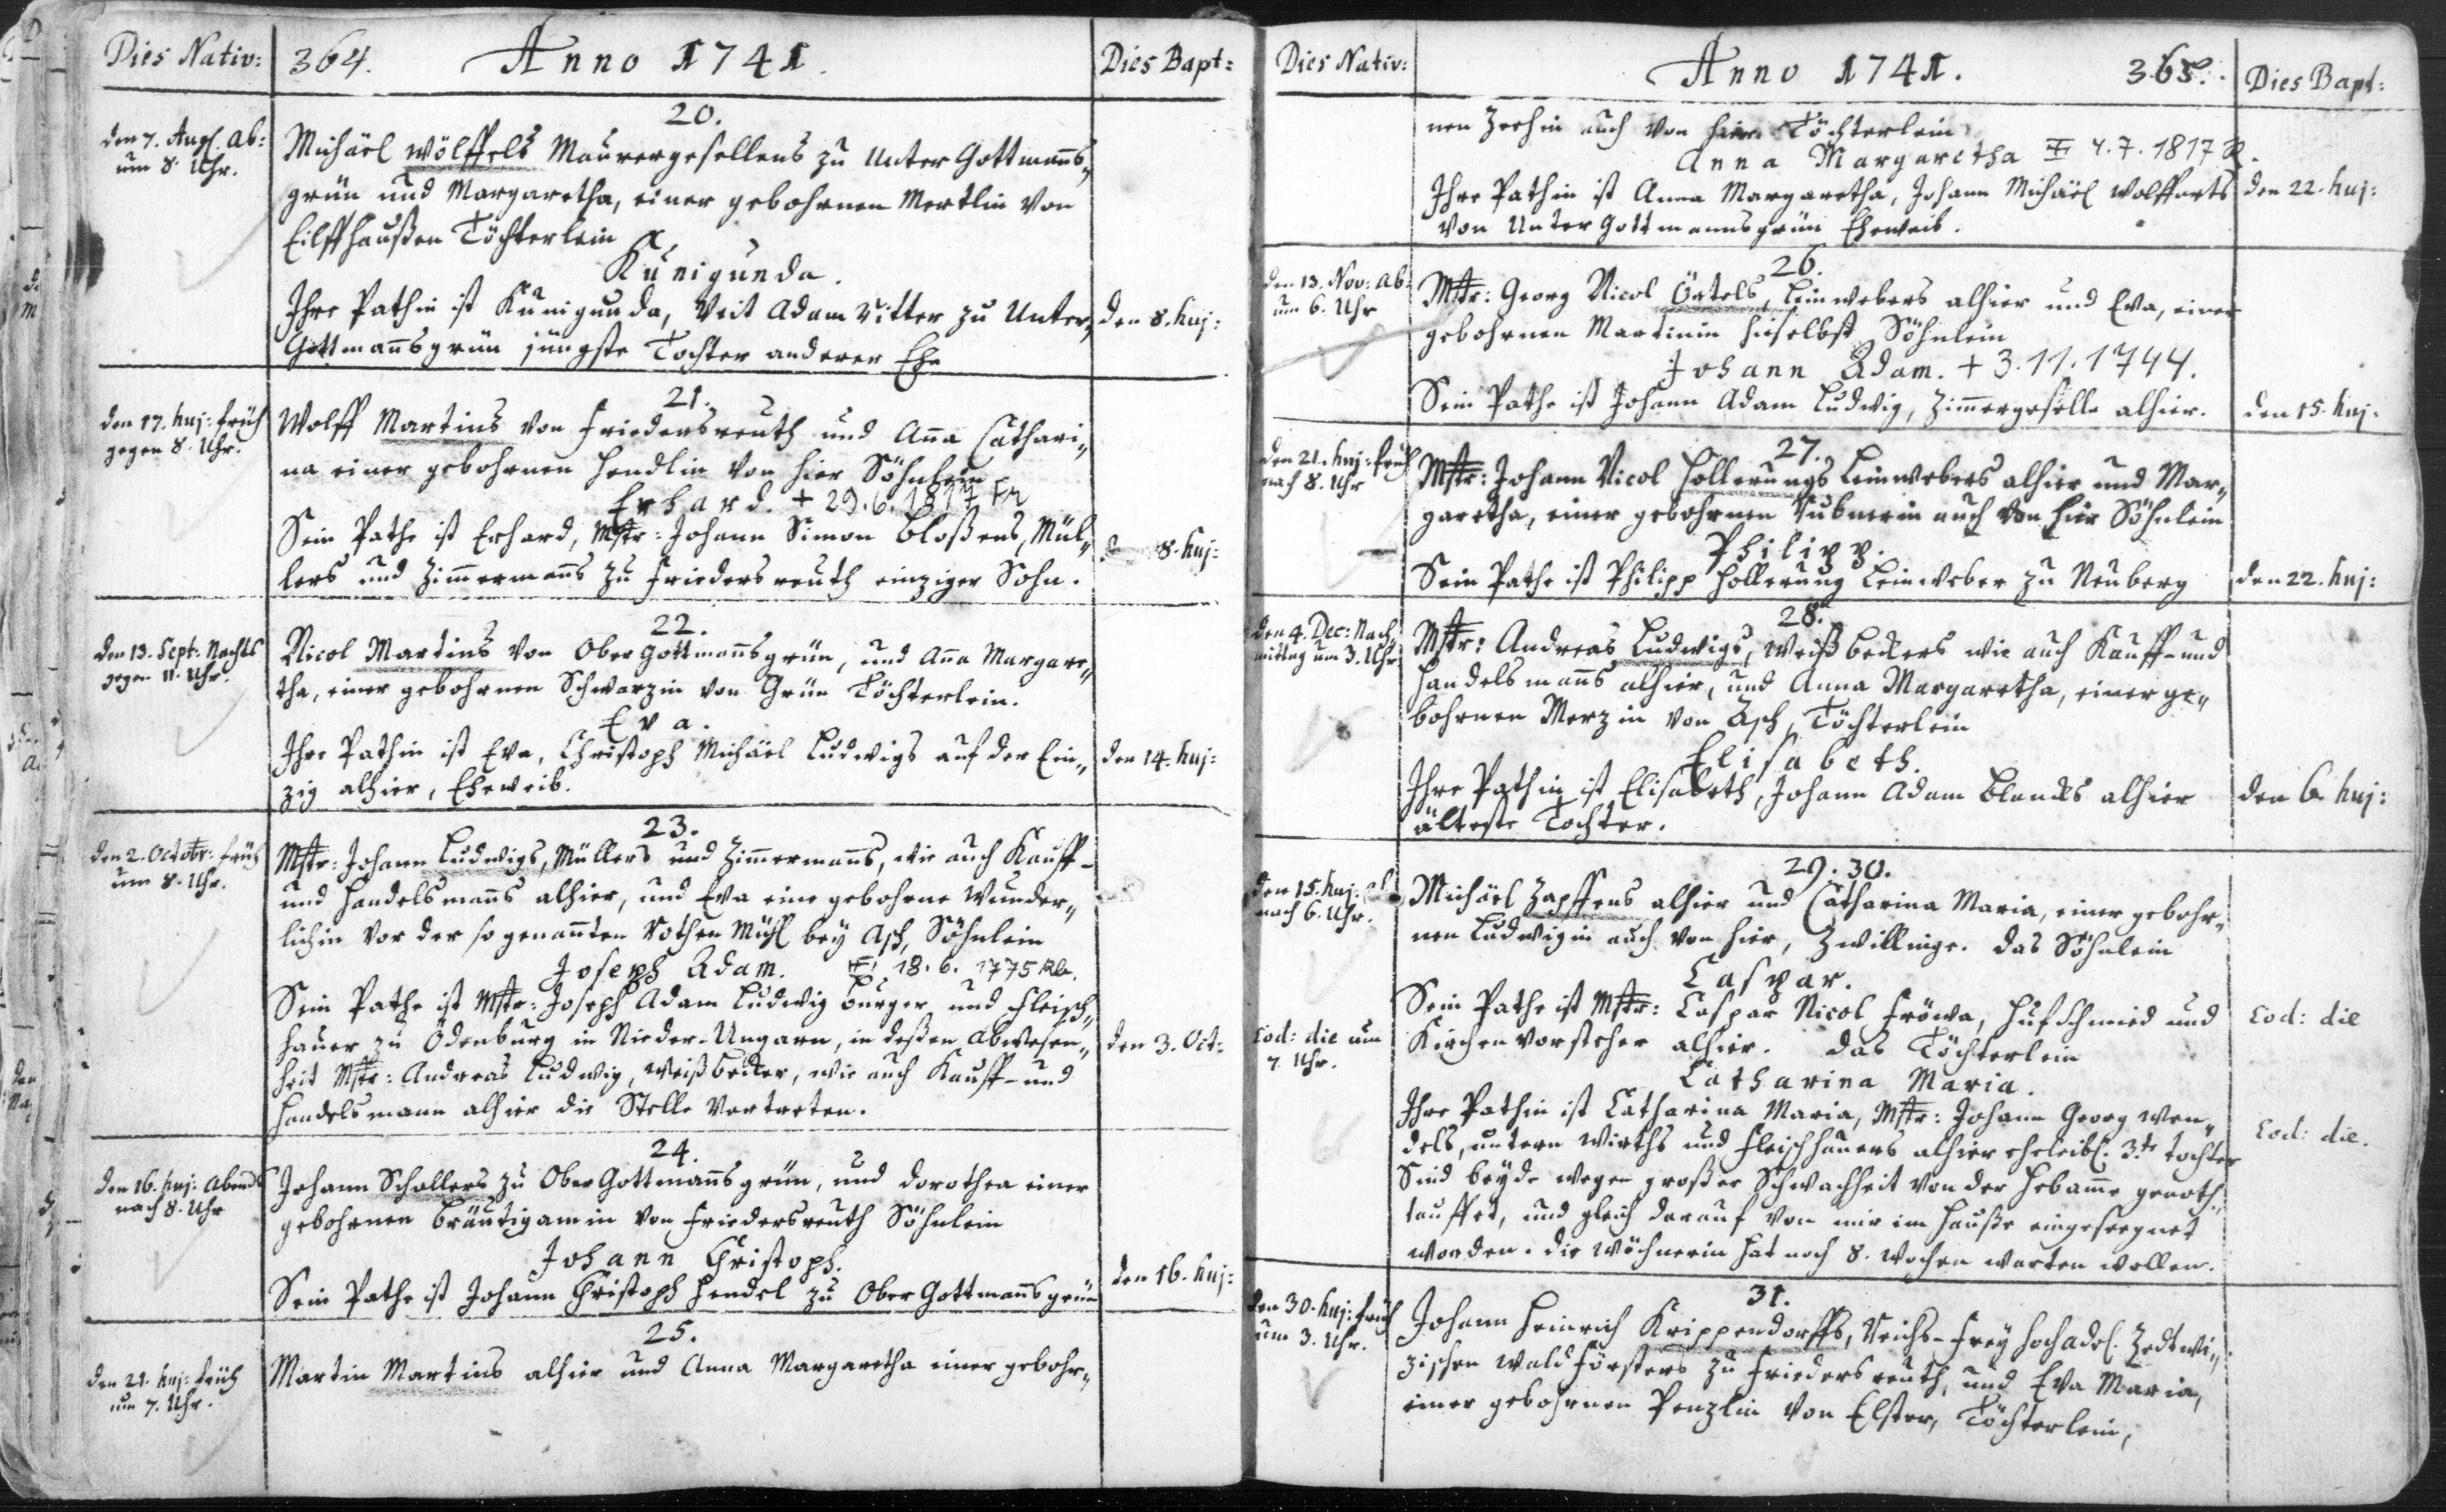 Dies Nativ:
364. Anno 1741.
Dies Bapt:
20.
den 7. Aug. Ab:
um 8. Uhr.
Michäel Wölffels Maurergesellens zu Unter Gottmanns,,
grün und Margaretha, einer gebohrnen Mertlin von
Eilffhaußen Töchterlein
Kunigunda.
Ihre Pathin ist Kunigunda, Veit Adam Ritter zu Unter,,
Gottmannsgrün jüngste Tochter anderer Ehe
den 8. huj:
21.
den 17. huj: früh
gegen 8. Uhr.
Wolff Martins von Friedersreuth und Anna Cathari,,
na einer gebohrnen Hendlin von hier Söhnlein
Erhard. + 29. 6. 1817 Fr
Sein Pathe ist Erhard, Mstr: Johann Simon Bloßens, Mül,,
lers und Zimmermanns zu Friedersreuth einziger Sohn.
8. huj:
22.
den 13. Sept: Nachts
gegen 11. Uhr.
Nicol Martins von Ober Gottmannsgrün, und Anna Margare,,
tha, einer gebohrnen Schwarzin von Grün Töchterlein.
Eva.
Ihre Pathin ist Eva, Christoph Michäel Ludwigs auf der Ein,,
zig alhier, Eheweib.
den 14. huj:
23.
den 2. Octobr: früh
um 8. Uhr.
Mstr: Johann Ludwigs, Müllers und Zimmermanns, wie auch Kauff-
und Handelsmanns alhier, und Eva eine gebohrne Wunder,,
lichin von der so genannten Rothen Mühl bey Asch, Söhnlein
Joseph Adam. 18. 6. 1775
Sein Pathe ist Mstr: Joseph Adam Ludwig Burger und Fleisch,,
hauer zu Ödenburg in Nieder-Ungarn, in deßen Abwesen,,
heit Mstr: Andreas Ludwig, Weißbecker, wie auch Kauff- und
Handelsmann alhier die Stelle vertreten.
den 3. Oct:
24.
den 16. huj: Abends
nach 8. Uhr
Johann Schollers zu Ober Gottmannsgrün, und Dorothea einer
gebohrnen Bräutigamin von Friedersreuth Söhnlein
Johann Christoph.
Sein Pathe ist Johann Christoph Hendel zu Ober Gottmannsgrün
den 16. huj:
25.
den 21. huj: früh
um 7. Uhr.
Martin Martins alhier und Anna Margaretha einer gebohr,,
Dies Nativ:
Anno 1741. 365.
Dies Bapt:
nen Zeehin auch von hier Töchterlein
Anna Margaretha 4. 7. 1817
Ihre Pathin ist Anna Margaretha, Johann Michäel Wolffarts
von Unter Gottmannsgrün Eheweib.
den 22. huj:
26.
den 13. Nov: Ab:
um 6. Uhr
Mstr: Georg Nicol Örtels, Leinwebers alhier und Eva, einer
gebohrnen Martinin hieselbst Söhnlein
Johann Adam. + 3. 11. 1744.
Sein Pathe ist Johann Adam Ludwig, Zimmergeselle alhier.
den 15. huj:
27.
den 21. huj: früh
nach 8. Uhr
Mstr: Johann Nicol Hollerungs Leinwebers alhier und Mar,,
garetha, einer gebohrnen Rubnerin auch von hier Söhnlein
Philipp.
Sein Pathe ist Philipp Hollerung Leinweber zu Neuberg
den 22. huj:
28.
den 4. Dec: Nach
mittag um 3. Uhr
Mstr: Andreas Ludwigs, Weißbeckers wie auch Kauff- und
Handelsmanns alhier, und Anna Margaretha, einer ge,,
bohrnen Merzin von Asch, Töchterlein
Elisabeth.
Ihre Pathin ist Elisabeth, Johann Adam Blancks alhier
älteste Tochter.
den 6. huj:
29. 30.
den 15. huj:
nach 6. Uhr.
Michäel Zapffens alhier und Catharina Maria, einer gebohr,,
nen Ludwigin auch von hier, Zwillinge. Das Söhnlein
Caspar.
Sein Pathe ist Mstr: Caspar Nicol Fröwa, Hufschmied und
Kirchenvorsteher alhier. Das Töchterlein
Eod: die
Eod: die um
7. Uhr.
Catharina Maria.
Ihre Pathin ist Catharina Maria, Mstr: Johann Georg Wen,,
dels, untern Wirths und Fleischhauers alhier eheleibl. 3.te Tochter
Sind beyde wegen großer Schwachheit von der Hebamme genoth,,
tauffet, und gleich darauf von mir im Hauße eingesegnet
worden. Die Wöchnerin hat noch 8. Wochen warten wollen.
Eod: die.
31.
den 30. huj: früh
um 3. Uhr.
Johann Heinrich Krippendorffs, Reichs-Frey Hochadel. Zedtwi,,
zischen Wald Försters zu Friedersreuth, und Eva Maria,
einer gebohrnen Penzlin von Elster, Töchterlein,